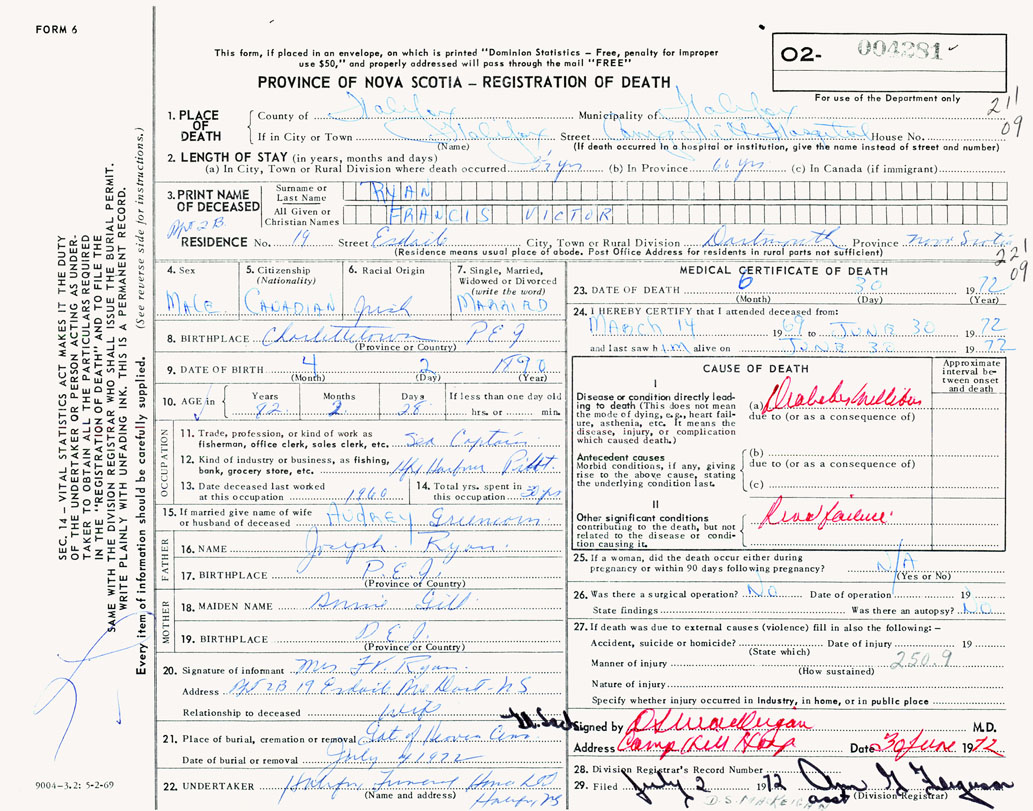 FORM 6
This form, if placed in an envelope, on which is printed "Dominion Statistics – Free, penalty for improper
use $50," and properly addressed will pass through the mail "FREE"
PROVINCE OF NOVA SCOTIA – REGISTRATION OF DEATH
O2- 004281
For use of the Department only
211
09
1. PLACE OF DEATH
County of Halifax Municipality of Halifax
If in City or Town Halifax Street Camp Hill Hospital House No.
(Name) (If death occurred in a hospital or institution, give the name instead of street and number)
2. LENGTH OF STAY (in years, months and days)
(a) In City, Town or Rural Division where death occurred yrs (b) In Province 66 yrs. (c) In Canada (if immigrant)
3. PRINT NAME OF DECEASED
Surname or Last Name RYAN
All Given or Christian Names FRANCIS VICTOR
Apt 2B.
RESIDENCE No. 19 Street Esdaile City, Town or Rural Division Dartmouth Province Nova Scotia
(Residence means usual place of abode. Post Office Address for residents in rural parts not sufficient)
221
09
4. Sex
MALE
5. Citizenship
(Nationality)
CANADIAN
6. Racial Origin
Irish
7. Single, Married,
Widowed or Divorced
(write the word)
MARRIED
8. BIRTHPLACE Charlottetown P.E.I
(Province or Country)
9. DATE OF BIRTH 4 2 1890
(Month) (Day) (Year)
10. AGE in
Years Months Days If less than one day
82 2 28 hrs. or min.
OCCUPATION
11. Trade, profession, or kind of work as
fisherman, office clerk, sales clerk, etc. Sea Captain
12. Kind of industry or business, as fishing,
bank, grocery store, etc. Hfx Harbour Pilot.
13. Date deceased last worked
at this occupation 1960
14. Total yrs. spent in
this occupation 30 yrs
15. If married give name of wife
or husband of deceased AUDREY Greencorn
FATHER
16. NAME Joseph Ryan
17. BIRTHPLACE P.E.I.
(Province or Country)
MOTHER
18. MAIDEN NAME Annie Gill
19. BIRTHPLACE P.E.I.
(Province or Country)
20. Signature of informant Mrs F.V. Ryan
Address Apt 2B 19 Esdaile Ave Dart. NS
Relationship to deceased wife
21. Place of burial, cremation or removal Gat of Heaven Cem
Date of burial or removal July 4 1972
22. UNDERTAKER Halifax Funeral Home Ltd
(Name and address) Halifax NS
MEDICAL CERTIFICATE OF DEATH
23. DATE OF DEATH 6 30 1972
(Month) (Day) (Year)
24. I HEREBY CERTIFY that I attended deceased from:
MARCH 14 1969 to JUNE 30 1972
and last saw him alive on JUNE 30 1972
CAUSE OF DEATH
Approximate
interval be-
tween onset
and death
I
Disease or condition directly lead-
ing to death (This does not mean
the mode of dying, e.g., heart fail-
ure, asthenia, etc. It means the
disease, injury, or complication
which caused death.)
(a) Diabetes Mellitus
due to (or as a consequence of)
Antecedent causes
Morbid conditions, if any, giving
rise to the above cause, stating
the underlying condition last.
(b)
due to (or as a consequence of)
(c)
II
Other significant conditions
contributing to the death, but not
related to the disease or condi-
tion causing it.
failure
25. If a woman, did the death occur either during
pregnancy or within 90 days following pregnancy? N/A
(Yes or No)
26. Was there a surgical operation? No Date of operation 19
State findings Was there an autopsy? No
27. If death was due to external causes (violence) fill in also the following: –
Accident, suicide or homicide? Date of injury 19
(State which)
Manner of injury 250.9
(How sustained)
Nature of injury
Specify whether injury occurred in Industry, in home, or in public place
Signed by M.D.
Address Camp Hill Hosp Date 30 June 1972
28. Division Registrar's Record Number
29. Filed July 2 1972 Ferguson
asst (Division Registrar)
SEC. 14 – VITAL STATISTICS ACT MAKES IT THE DUTY
OF THE UNDERTAKER OR PERSON ACTING AS UNDER-
TAKER TO OBTAIN ALL THE PARTICULARS REQUIRED
IN THE "REGISTRATION OF DEATH" AND TO FILE THE
SAME WITH THE DIVISION REGISTRAR WHO SHALL ISSUE THE BURIAL PERMIT.
WRITE PLAINLY WITH UNFADING INK. THIS IS A PERMANENT RECORD.
Every item of information should be carefully supplied. (See reverse side for instructions.)
9004-3.2: 5-2-69